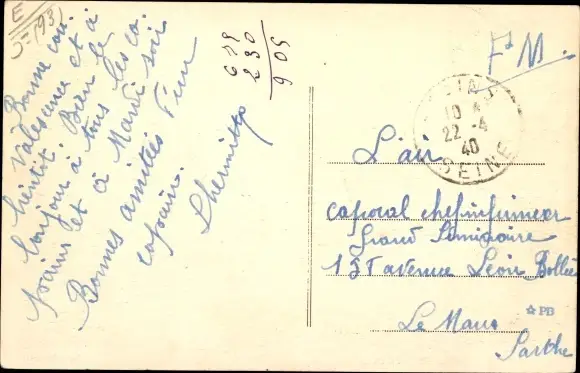 E
(93)
Bonne con
valesence et à
bientôt. Bien le
bonjour à tous les co
pains et à Mardi soir
Bonnes amitiés d'un
copain.
Lhermitte
675
230
905
F.M.
10
22-4
40
SEINE
L'air
caporal chef infirmier
Grand Séminaire
1 avenue Léon Bollée
Le Mans
Sarthe
☆PB